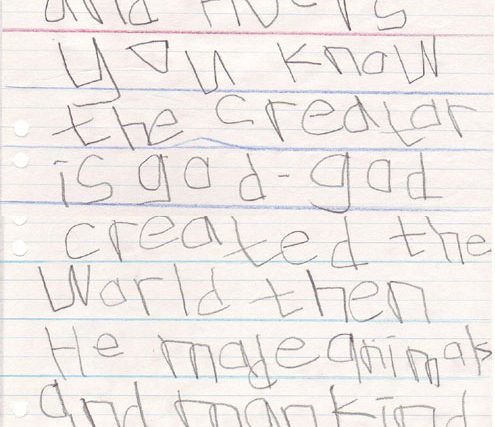 and
you know
the creator
is god - god
created the
World then
He made animals
and mankind